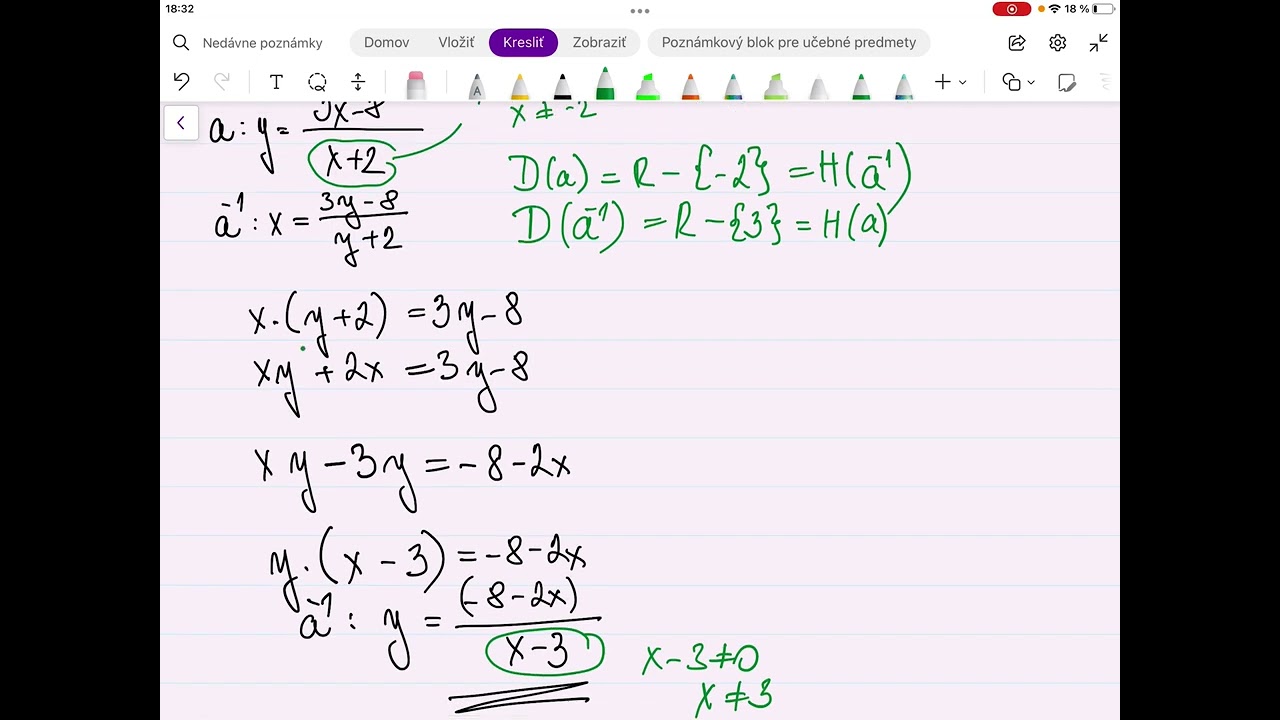 18:32
18 %
Nedávne poznámky Domov Vložiť Kresliť Zobraziť Poznámkový blok pre učebné predmety
T A
x ≠ -2
a: y = 3x-8 / x+2
D(a) = R - {-2} = H(a⁻¹)
a⁻¹: x = 3y-8 / y+2
D(a⁻¹) = R - {3} = H(a)
x·(y+2) = 3y-8
xy + 2x = 3y-8
xy - 3y = -8-2x
y·(x-3) = -8-2x
a⁻¹: y = (-8-2x) / x-3
x-3≠0
x≠3